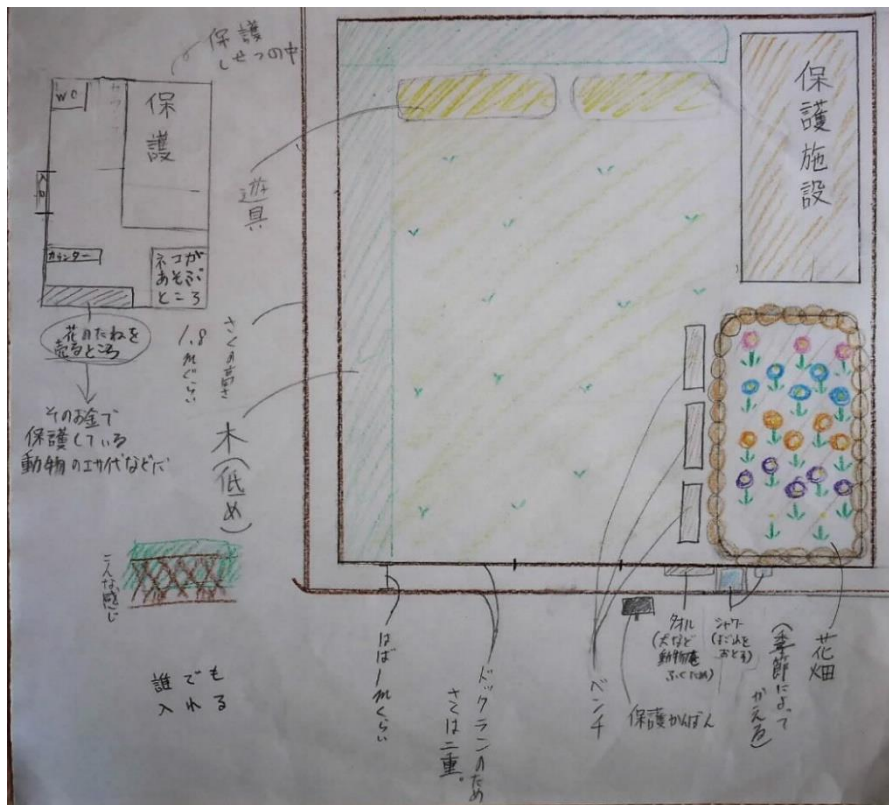 保護
しせつの中
WC
保護
入口
カウンター
ネコが
あそぶ
ところ
花のたねを
売るところ
そのお金で
保護している
動物のエサ代などに
遊具
さくの高さ
1.8mぐらい
木(低め)
こんな感じ
誰でも
入れる
保護施設
はば1mくらい
ドックランのため
さくは二重。
ベンチ
保護かんばん
タオル
(犬など
動物庵
ふくため)
シャワー
(よごれを
おとす)
花畑
(季節によって
かえる)